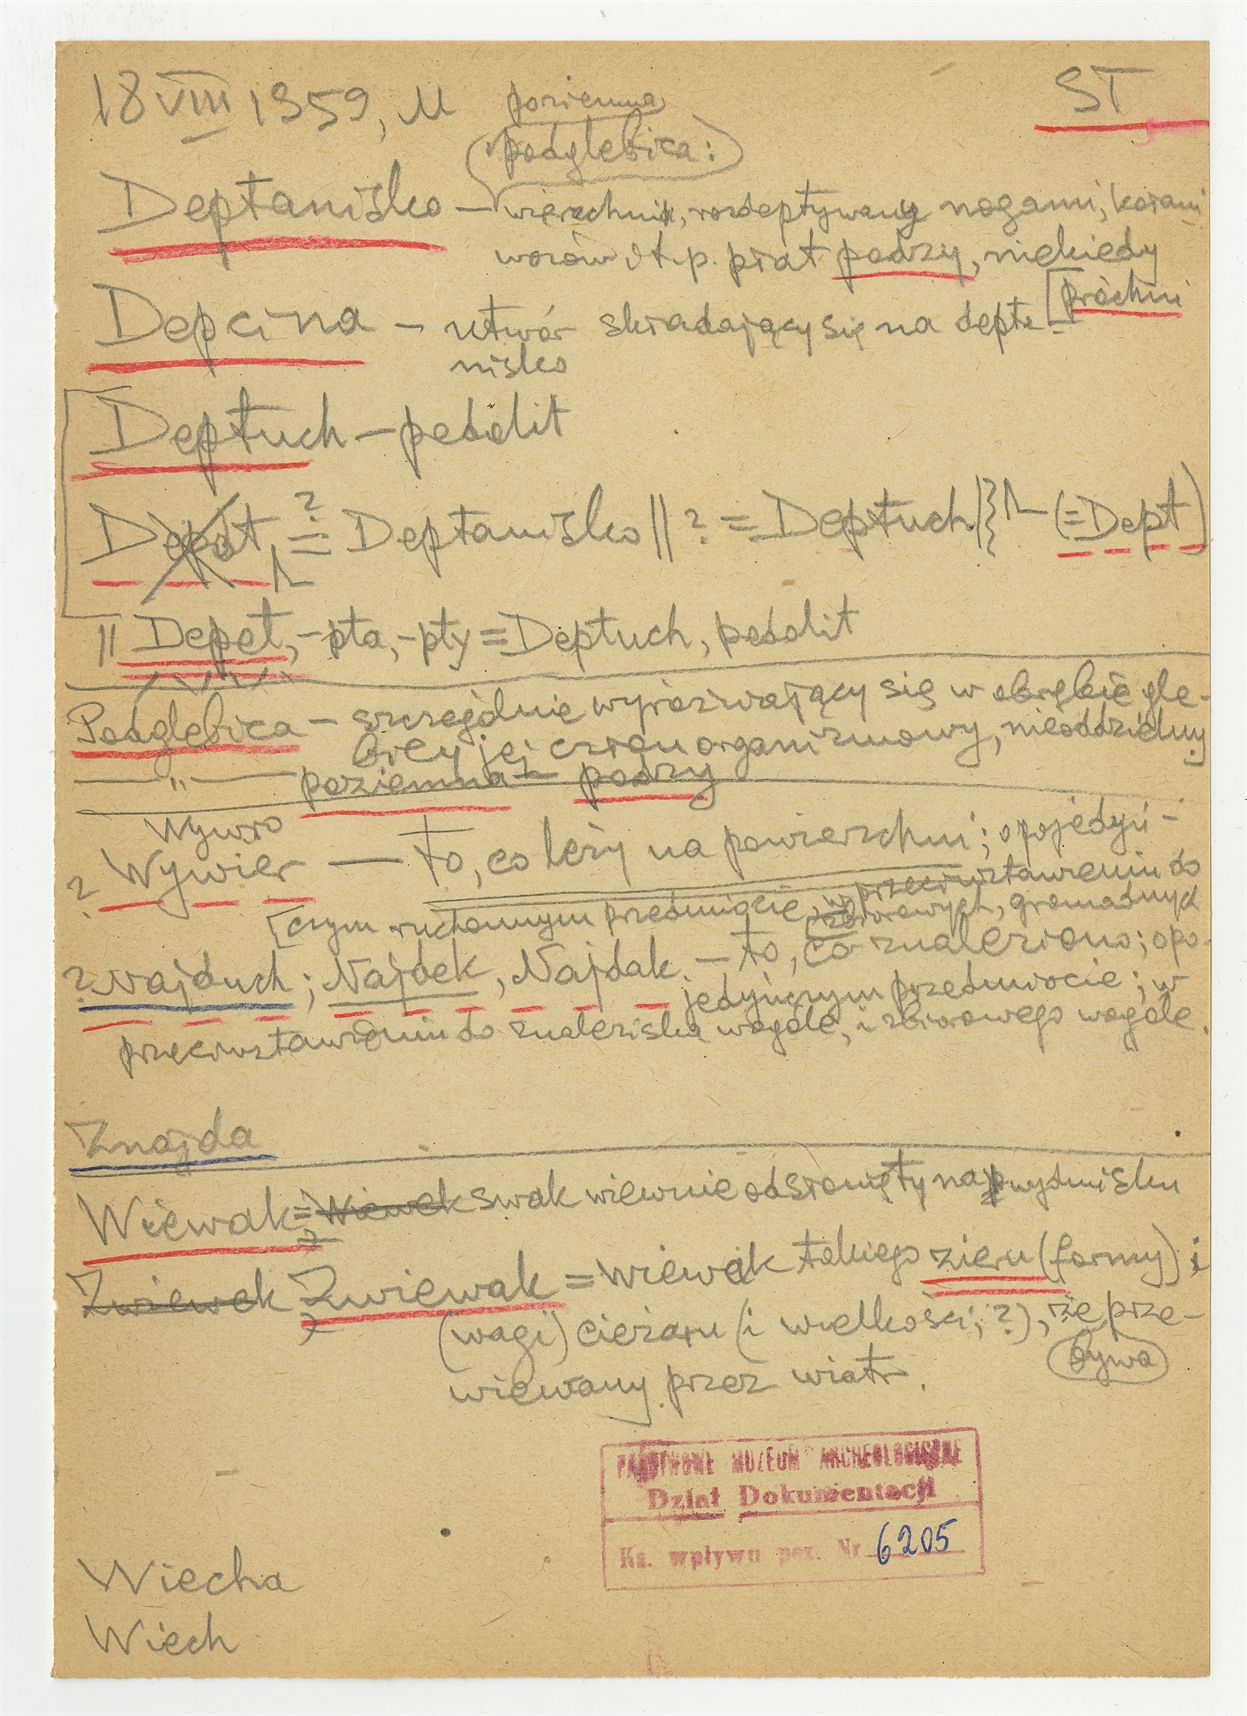 18 VIII 1959, M
ST
poziemna
podglebica:
Deptanisko — wierzchni, rozdeptywany nogami, kołami
wozów i t.p. płat podzy, niekiedy
[próchni
Depcina — utwór składający się na depta-
nisko
Deptuch — pedolit
Depot, ? = Deptanisko || ? = Deptuch (= Dept)
|| Depet, -pta, -pty = Deptuch, pedolit
Podglebica — szczególnie wyróżniający się w obrębie gle-
bicy jej człon organizmowy, nieoddzielny
— " — poziemna — podzy
Wywro
? Wywier — to, co leży na powierzchni; o pojedyń-
[czym ruchomym przedmiocie, w przeciwstawieniu do
zbiorowych, gromadnych
? Najduch; Najdek, Najdak — to, co znaleziono; o po-
jedyńczym przedmiocie; w
przeciwstawieniu do znaleziska wogóle, i zbiorowego wogóle.
Znajda
Wiewak = Wiewek swak wiewnie odsłonięty na wydmisku
Zwiewek Zwiewak = wiewak takiego zieru (formy) i
(wagi) ciężaru (i wielkości; ?), że prze-
bywa
wiewany przez wiatr.
PAŃSTWOWE MUZEUM ARCHEOLOGICZNE
Dział Dokumentacji
Ks. wpływu poz. Nr 6205
Wiecha
Wiech